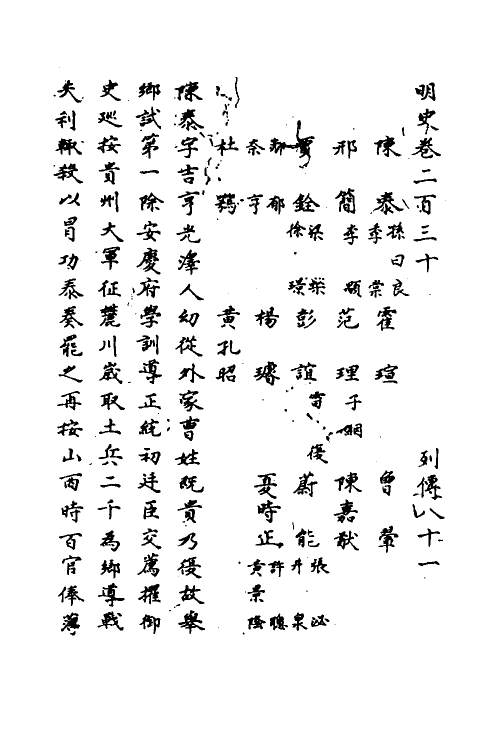 明史卷二百三十 列傳八十一
陳泰 孫曰良 李棠 霍瑄 曾翬
邢簡 李顒 范理 子 陳嘉猷
賈銓 梁棨 徐璟 彭誼 蔚能 張泌 井泉
鄭郁 奈亨 楊璿 夏時正 許聰 黃景隆
杜 黃孔昭
陳泰字吉亨光澤人幼從外家曹姓既貴乃復故舉
鄉試第一除安慶府學訓導正統初廷臣交薦擢御
史巡按貴州大軍征麓川歲取土兵二千為鄉導戰
失利輒殺以冒功泰奏罷之再按山西時百官俸薄